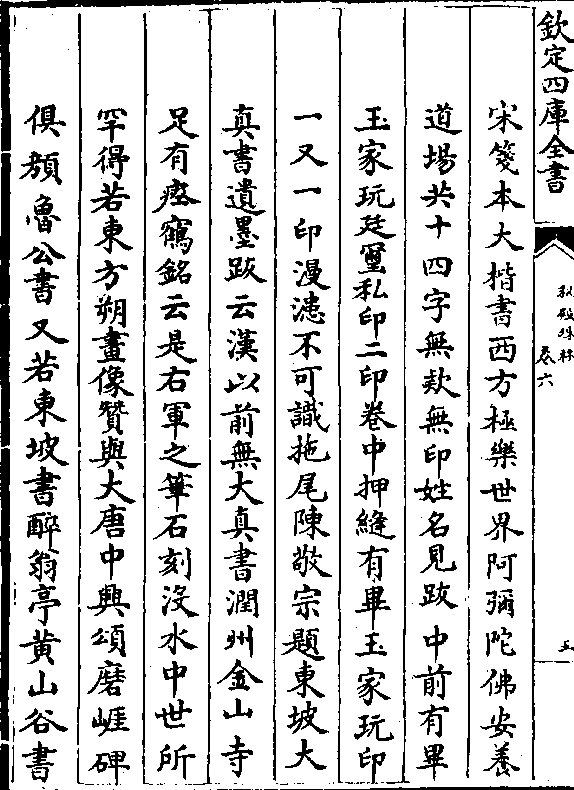 欽定四庫全書
秘殿珠林
卷六
五
宋箋本大楷書西方極樂世界阿彌陀佛安養
道場共十四字無欵無印姓名見跋中前有畢
玉家玩廷璽私印二印卷中押縫有畢玉家玩印
一又一印漫漶不可識拖尾陳敬宗題東坡大
真書遺墨跋云漢以前無大真書潤州金山寺
足有瘞鶴銘云是右軍之筆石刻沒水中世所
罕得若東方朔畫像贊與大唐中興頌磨崕碑
俱顔魯公書又若東坡書醉翁亭黄山谷書